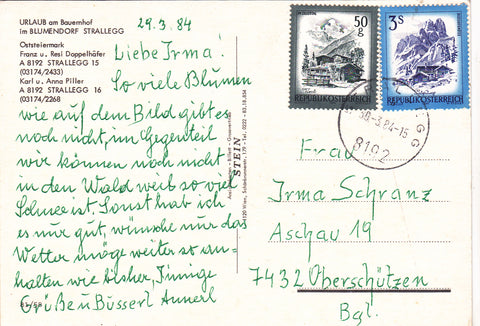 URLAUB am Bauernhof
im BLUMENDORF STRALLEGG
Oststeiermark
Franz u. Resi Doppelhäfer
A 8192 STRALLEGG 15
(03174/2433)
Karl u. Anna Piller
A 8192 STRALLEGG 16
(03174/2268)
29.3.84
Liebe Irma!
So viele Blumen
wie auf dem Bild gibt es
noch nicht, im Gegenteil
wir können noch nicht
in den Wald weil so viel
Schnee ist. Sonst hab ich
es nur gut, wünsche nur das
Wetter möge weiter so an-
halten wie bisher, Innige
Grüße u Busserl Annerl
STEIN
50 g
REPUBLIK ÖSTERREICH
3 S
REPUBLIK ÖSTERREICH
30.-3.84-15
8192
Frau
Irma Schranz
Aschau 19
7432 Oberschützen
Bgl.